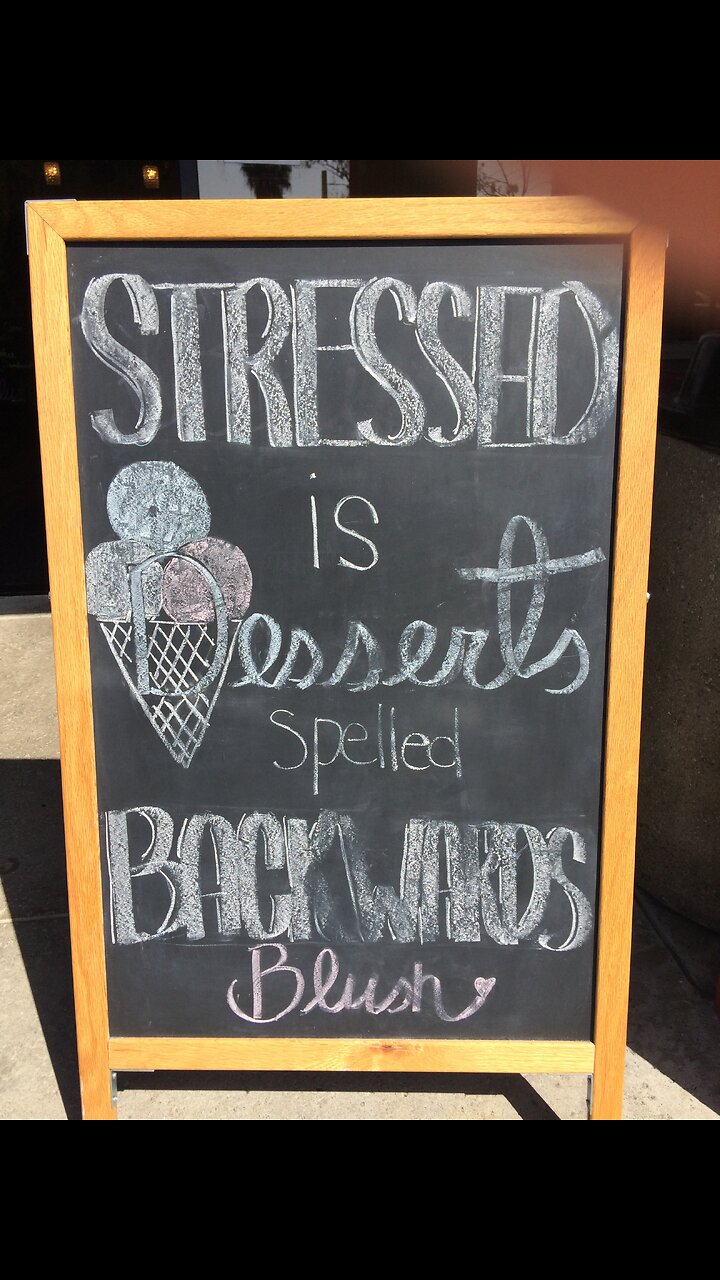 STRESSED
is
Desserts
spelled
BACKWARDS
Blush